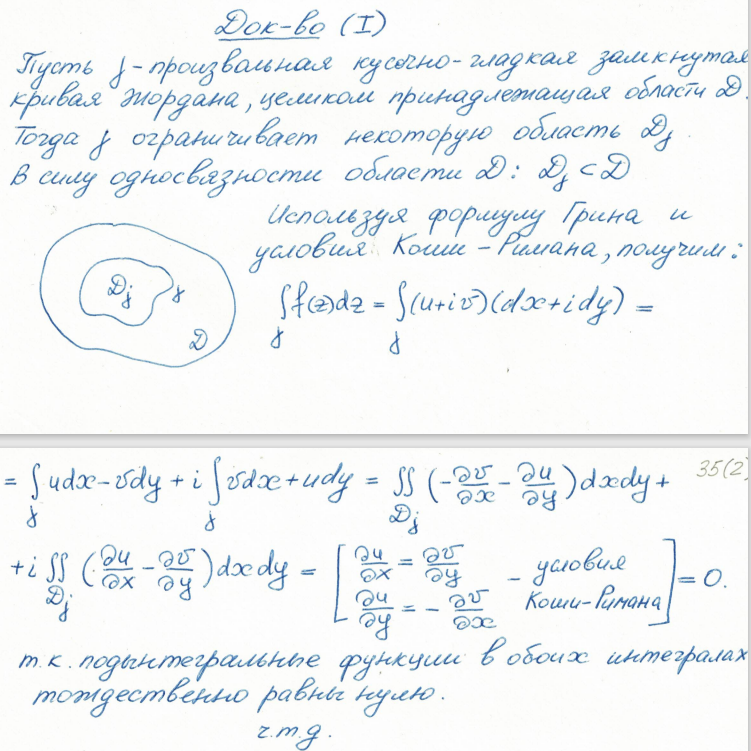 Док-во (I)
Пусть γ - произвольная кусочно-гладкая замкнутая
кривая Жордана, целиком принадлежащая области D.
Тогда γ ограничивает некоторую область Dγ.
В силу односвязности области D: Dγ ⊂ D
Используя формулу Грина и
условия Коши-Римана, получим:
Dγ γ
D
∫γ f(z)dz = ∫γ (u+iv)(dx+idy) =
35(2)
= ∫γ udx-vdy + i ∫γ vdx+udy = ∬Dγ (-∂v/∂x - ∂u/∂y)dxdy +
+i ∬Dγ (∂u/∂x - ∂v/∂y)dxdy = [∂u/∂x = ∂v/∂y ∂u/∂y = -∂v/∂x - условия Коши-Римана] = 0.
т.к. подынтегральные функции в обоих интегралах
тождественно равны нулю.
ч.т.д.